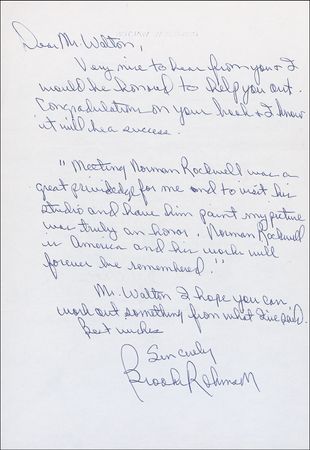 Dear Mr. Walton,
Very nice to hear from you & I
would be honored to help you out.
Congradulation on your book & I know
it will be a success.
"Meeting Norman Rockwell was a
great priviledge for me and to visit his
studio and have him paint my picture
was truly an honor. Norman Rockwell
is America and his works will
forever be remembered."
Mr. Walton I hope you can
work out something from what I've said.
Best wishes
Sincerely